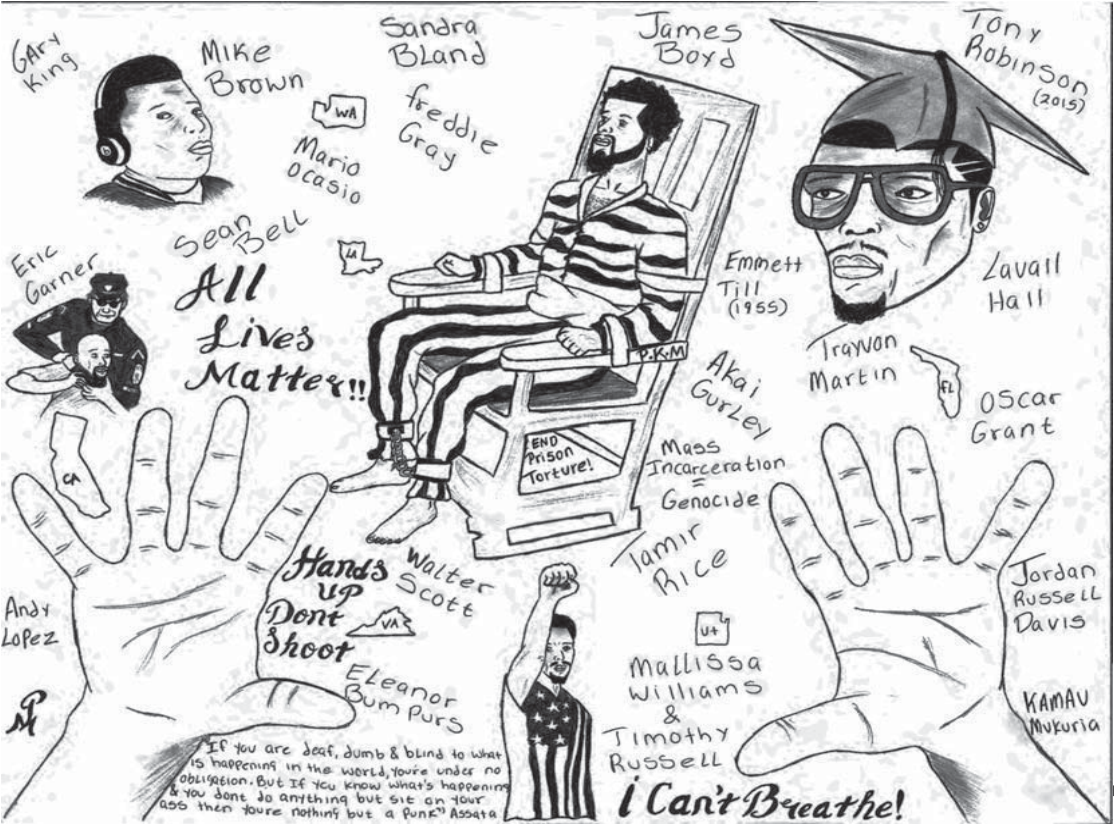 GAry
King
Mike
Brown
Sandra
BLand
James
Boyd
Tony
Robinson
(2015)
WA
freddie
Gray
Mario
Ocasio
Sean
Bell
LA
Eric
Garner
All
Lives
Matter!!
Emmett
Till
(1955)
Lavall
Hall
P.K.M
Trayvon
Martin
FL
Akai
Gurley
Oscar
Grant
END
Prison
Torture!
Mass
Incarceration
=
Genocide
CA
Tamir
Rice
Hands
UP
Dont
Shoot
Walter
Scott
VA
Andy
Lopez
Jordan
Russell
Davis
Ut
Eleanor
Bumpurs
Mallissa
Williams
&
Timothy
Russell
KAMAU
Mukuria
If you are deaf, dumb & blind to what
is happening in the world, you're under no
obligation. But If you know what's happening
& you dont do anything but sit on your
ass then you're nothing but a punk" Assata
i Can't Breathe!